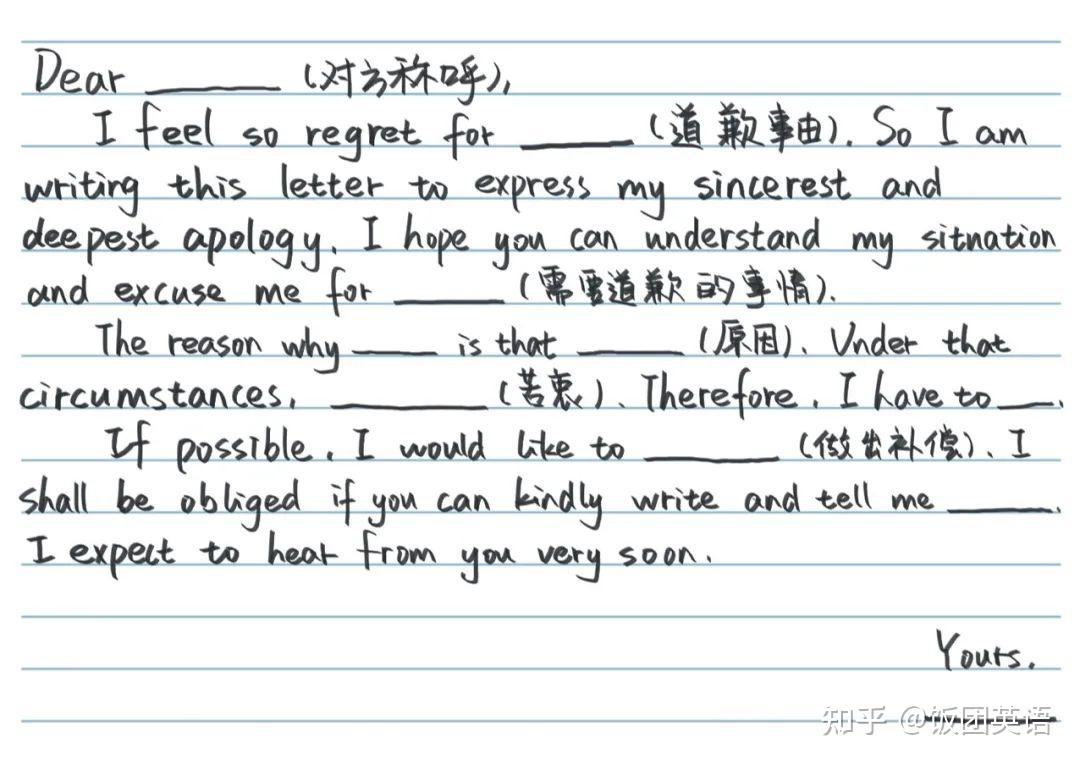 Dear ______ (对方称呼),
I feel so regret for ______ (道歉事由). So I am
writing this letter to express my sincerest and
deepest apology. I hope you can understand my situation
and excuse me for ______ (需要道歉的事情).
The reason why ____ is that _____ (原因). Under that
circumstances, _______ (苦衷). Therefore, I have to ___.
If possible, I would like to ______ (做出补偿). I
shall be obliged if you can kindly write and tell me _____.
I expect to hear from you very soon.
Yours,
知乎 @饭团英语